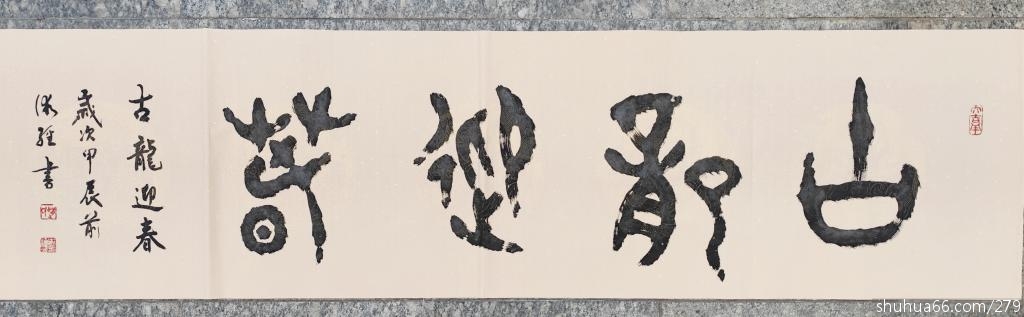 古龍迎春
古龍迎春
歲次甲辰前
書
shuhua66.com/279